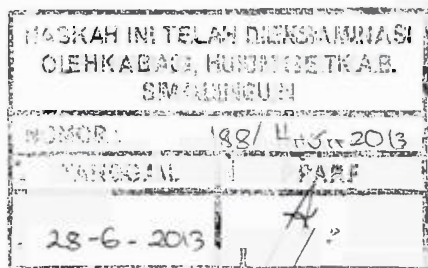 NASKAH INI TELAH DIEKSAMINASI
OLEH KABAG. HUKUM SETKAB.
SIMALUNGUN
NOMOR : 188/ 2013
TANGGAL PARAF
28-6-2013